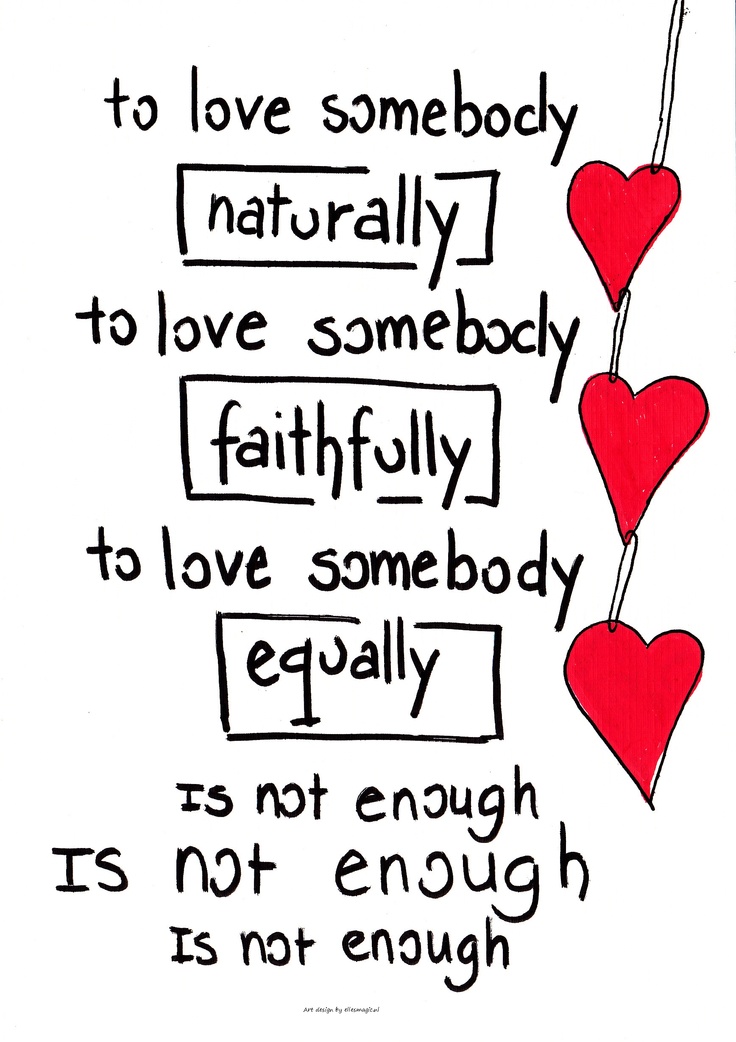 to love somebody
naturally
to love somebody
faithfully
to love somebody
equally
Is not enough
Is not enough
Is not enough
Art design by ellesmagic.nl